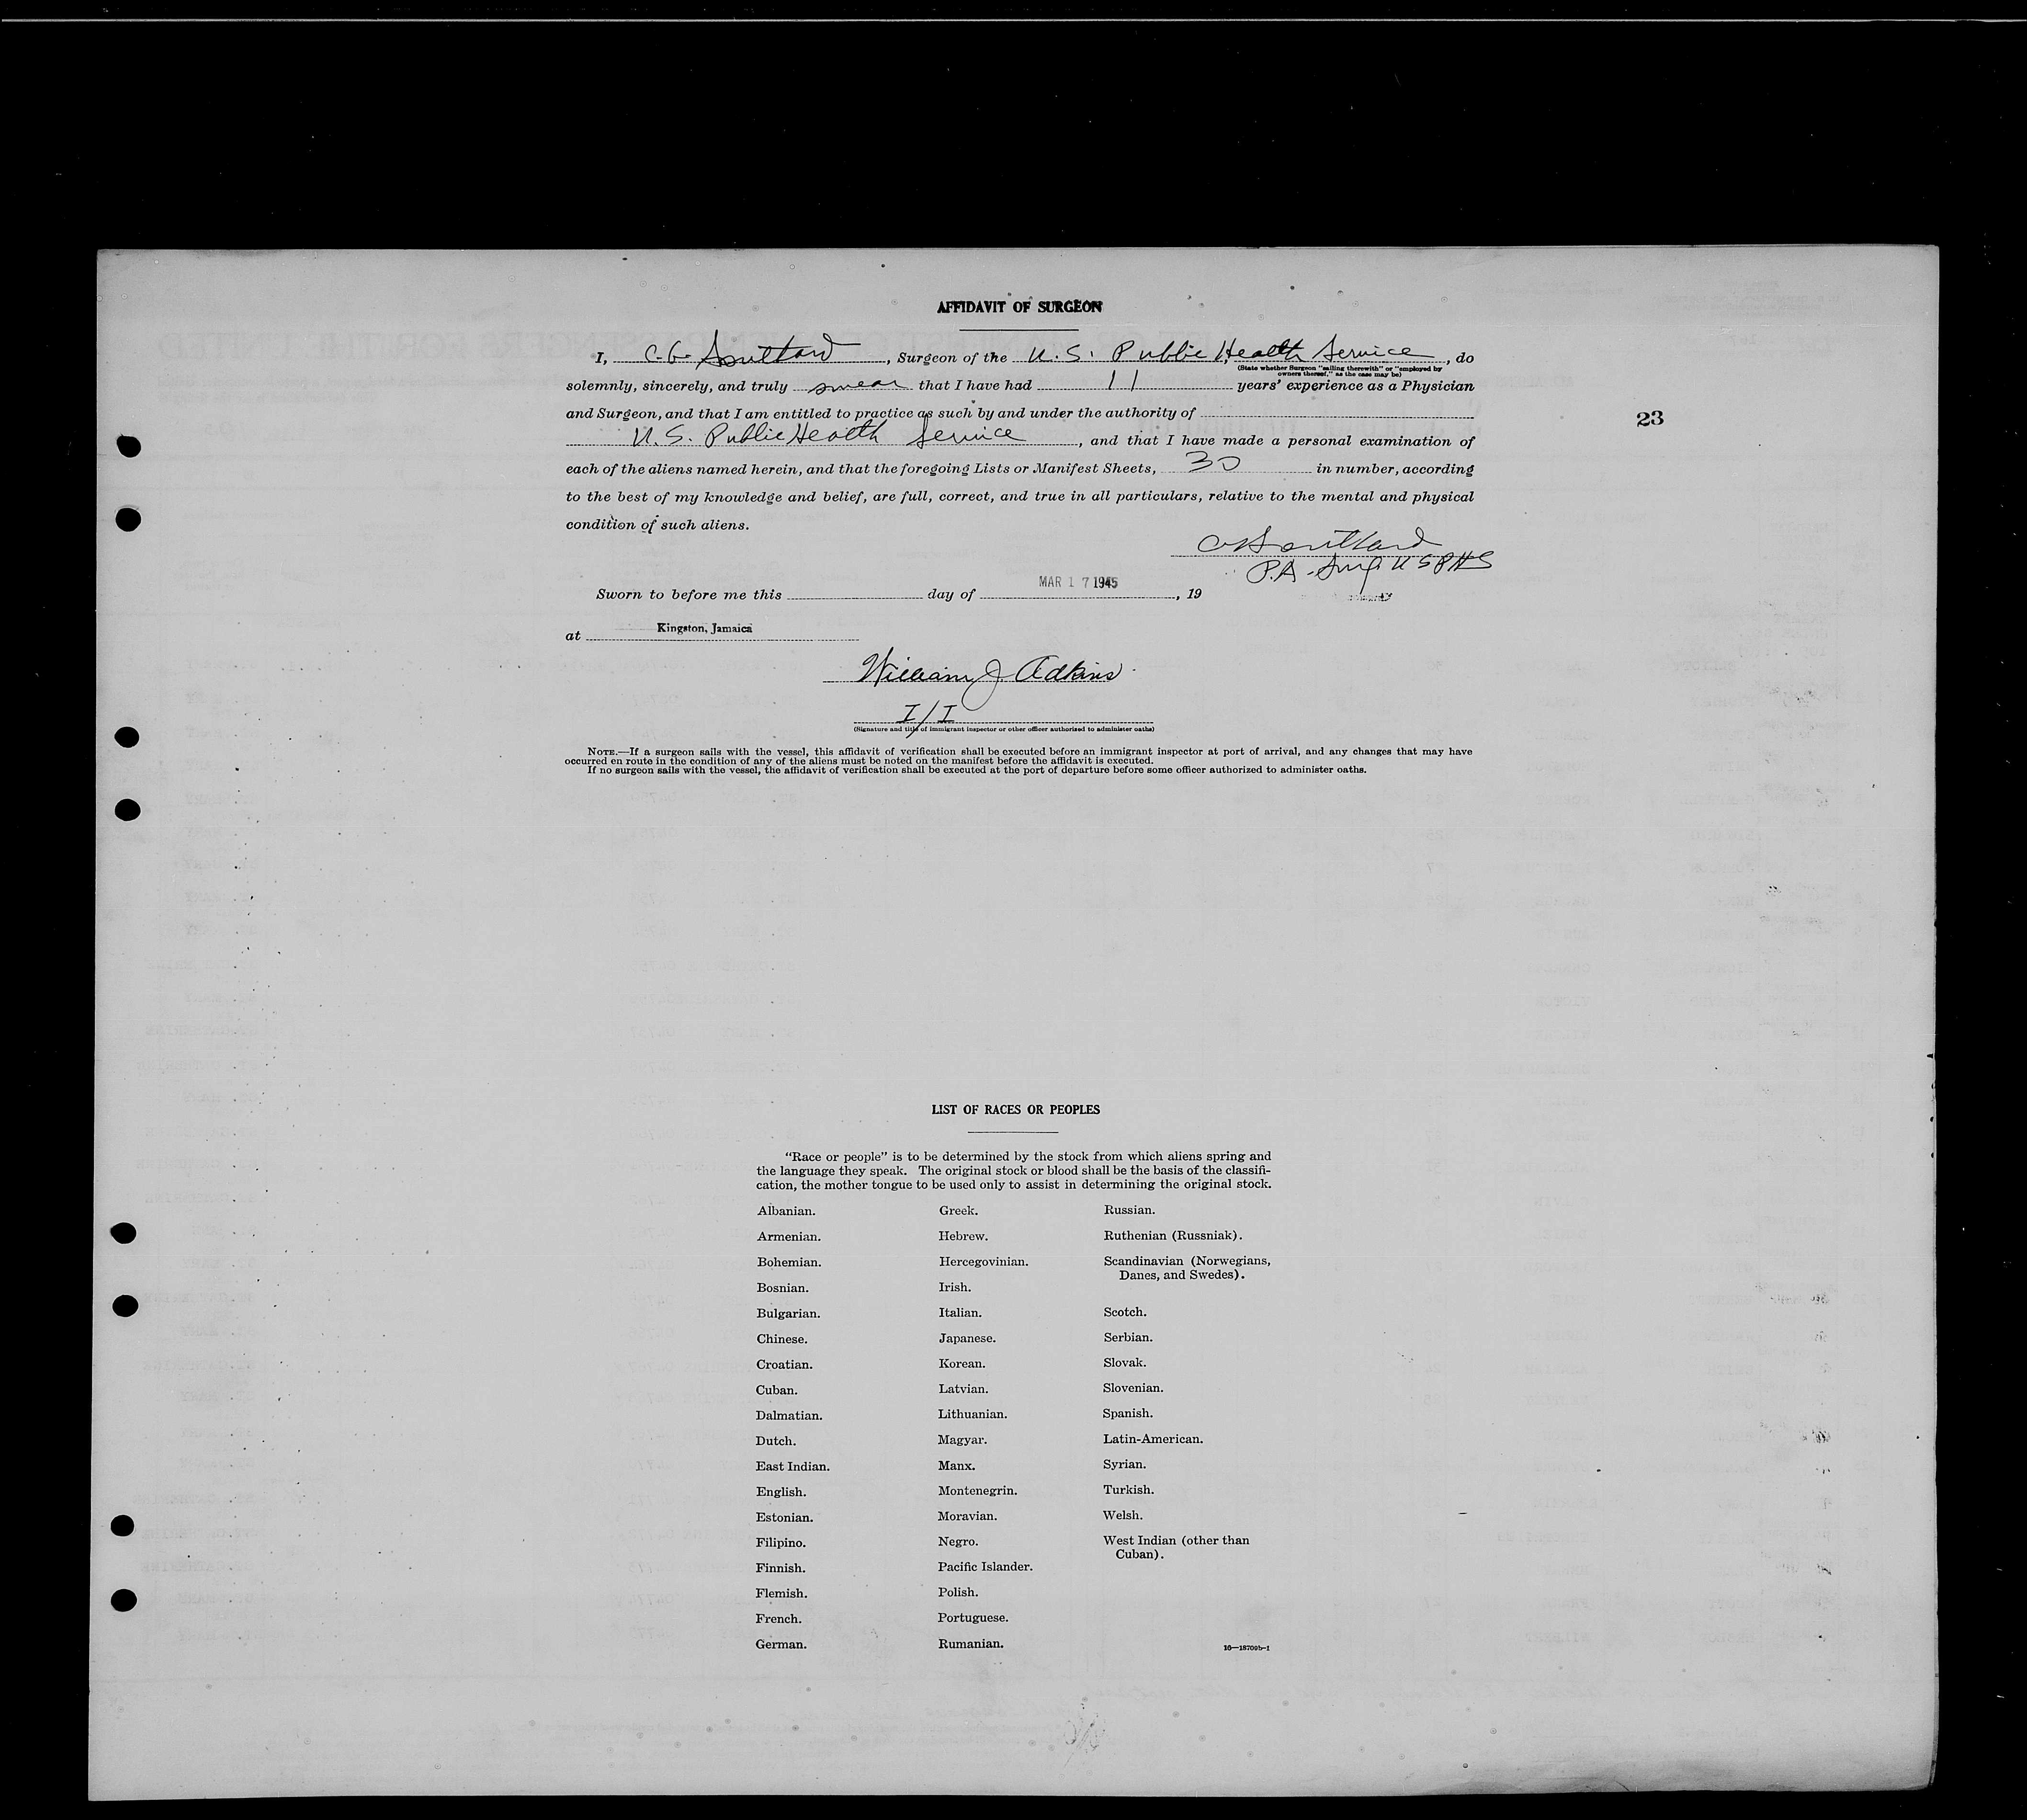 AFFIDAVIT OF SURGEON
I, C. G. Southard, Surgeon of the U. S. Public Health Service, do
(State whether Surgeon "sailing therewith" or "employed by
owners thereof," as the case may be)
solemnly, sincerely, and truly swear that I have had 11 years' experience as a Physician
and Surgeon, and that I am entitled to practice as such by and under the authority of
23
U. S. Public Health Service, and that I have made a personal examination of
each of the aliens named herein, and that the foregoing Lists or Manifest Sheets, 30 in number, according
to the best of my knowledge and belief, are full, correct, and true in all particulars, relative to the mental and physical
condition of such aliens.
Southard
P.A. Surg. U S P H S
MAR 17 1945
Sworn to before me this day of , 19
at Kingston, Jamaica
William J. Adkins
I/I
(Signature and title of immigrant inspector or other officer authorized to administer oaths)
NOTE.—If a surgeon sails with the vessel, this affidavit of verification shall be executed before an immigrant inspector at port of arrival, and any changes that may have
occurred en route in the condition of any of the aliens must be noted on the manifest before the affidavit is executed.
If no surgeon sails with the vessel, the affidavit of verification shall be executed at the port of departure before some officer authorized to administer oaths.
LIST OF RACES OR PEOPLES
"Race or people" is to be determined by the stock from which aliens spring and
the language they speak. The original stock or blood shall be the basis of the classifi-
cation, the mother tongue to be used only to assist in determining the original stock.
Albanian.
Armenian.
Bohemian.
Bosnian.
Bulgarian.
Chinese.
Croatian.
Cuban.
Dalmatian.
Dutch.
East Indian.
English.
Estonian.
Filipino.
Finnish.
Flemish.
French.
German.
Greek.
Hebrew.
Hercegovinian.
Irish.
Italian.
Japanese.
Korean.
Latvian.
Lithuanian.
Magyar.
Manx.
Montenegrin.
Moravian.
Negro.
Pacific Islander.
Polish.
Portuguese.
Rumanian.
Russian.
Ruthenian (Russniak).
Scandinavian (Norwegians,
Danes, and Swedes).
Scotch.
Serbian.
Slovak.
Slovenian.
Spanish.
Latin-American.
Syrian.
Turkish.
Welsh.
West Indian (other than
Cuban).
16—18709b-1